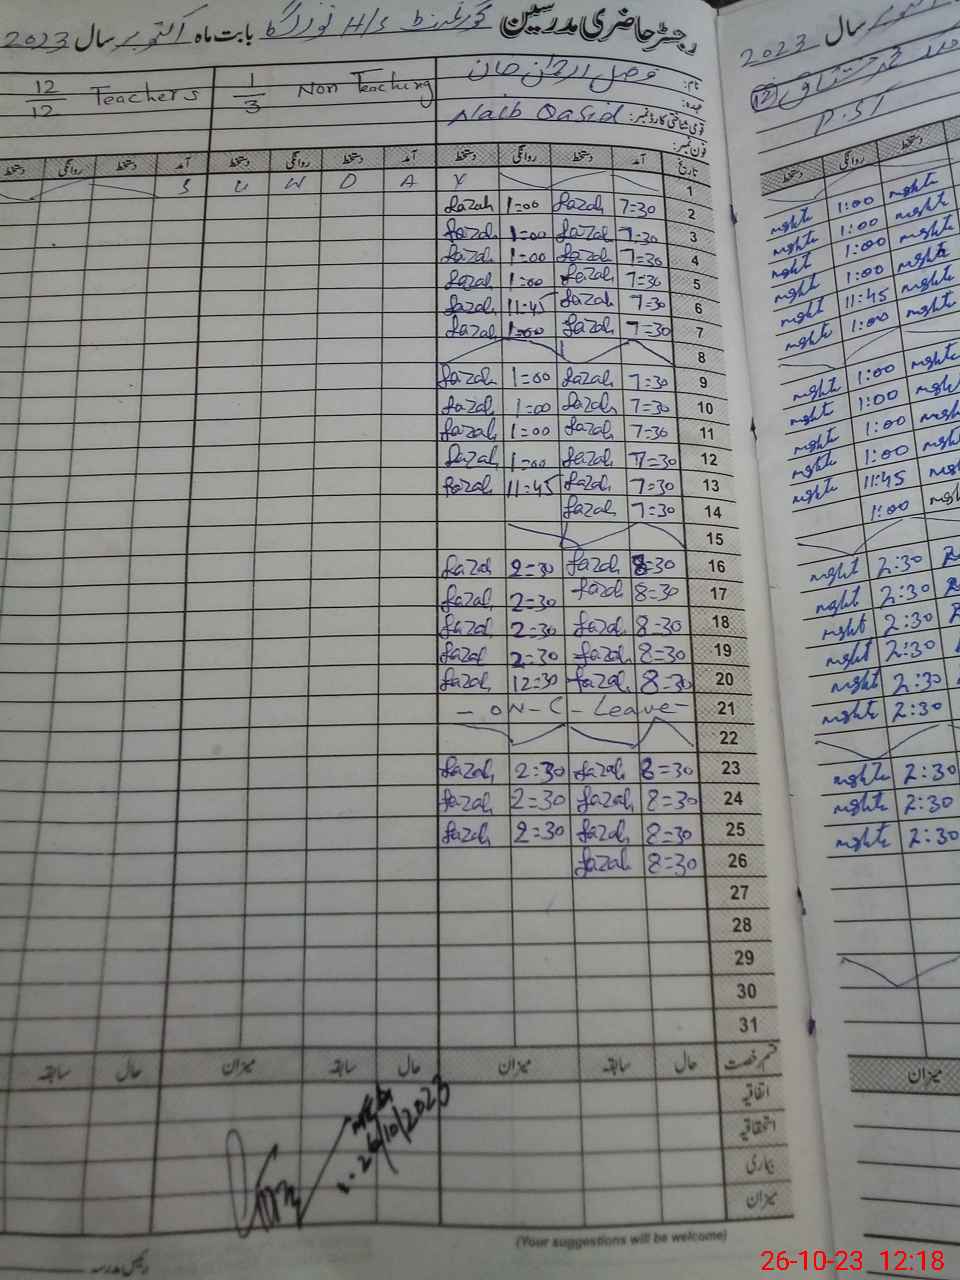 رجسٹر حاضری مدرسین گورنمنٹ H/S بابت ماہ اکتوبر سال 2023
نام: فضل الرحمٰن خان
عہدہ: Naib Qasid
قومی شناختی کارڈ نمبر:
فون نمبر:
12/12 Teachers
1/3 Non Teaching
تاریخ آمد دستخط روانگی دستخط آمد دستخط روانگی دستخط آمد دستخط روانگی دستخط
1 Y A D N U S
2 7=30 fazal 1=00 fazal
3 7=30 fazal 1=00 fazal
4 7=30 fazal 1=00 fazal
5 7=30 fazal 1=00 fazal
6 7=30 fazal 11=45 fazal
7 7=30 fazal 1=00 fazal
8
9 7=30 fazal 1=00 fazal
10 7=30 fazal 1=00 fazal
11 7=30 fazal 1=00 fazal
12 7=30 fazal 1=00 fazal
13 7=30 fazal 11=45 fazal
14 7=30 fazal
15
16 8=30 fazal 2=30 fazal
17 8=30 fazal 2=30 fazal
18 8=30 fazal 2=30 fazal
19 8=30 fazal 2=30 fazal
20 8=30 fazal 12=30 fazal
21 - ON - C - Leave -
22
23 8=30 fazal 2=30 fazal
24 8=30 fazal 2=30 fazal
25 8=30 fazal 2=30 fazal
26 8=30 fazal
27
28
29
30
31
قسم رخصت حال سابقہ میزان حال سابقہ میزان حال سابقہ
اتفاقیہ
استحقاقیہ
بیماری
میزان
26/10/2023
(Your suggestions will be welcome)
رئیس مدرسہ
سال 2023
12
P.ST
دستخط روانگی دستخط
1:00
1:00
1:00
1:00
11:45
1:00
1:00
1:00
1:00
1:00
11:45
1:00
2:30
2:30
2:30
2:30
2:30
2:30
2:30
2:30
2:30
میزان
26-10-23 12:18